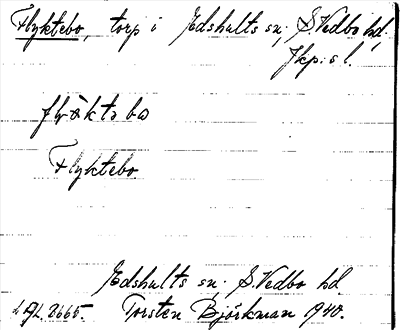 Flyktebo, torp i Edshults sn; S. Vedbo hd,
Jkp:s l.
Flyktebo
Edshults sn; S. Vedbo hd
Torsten Björkman 1940.